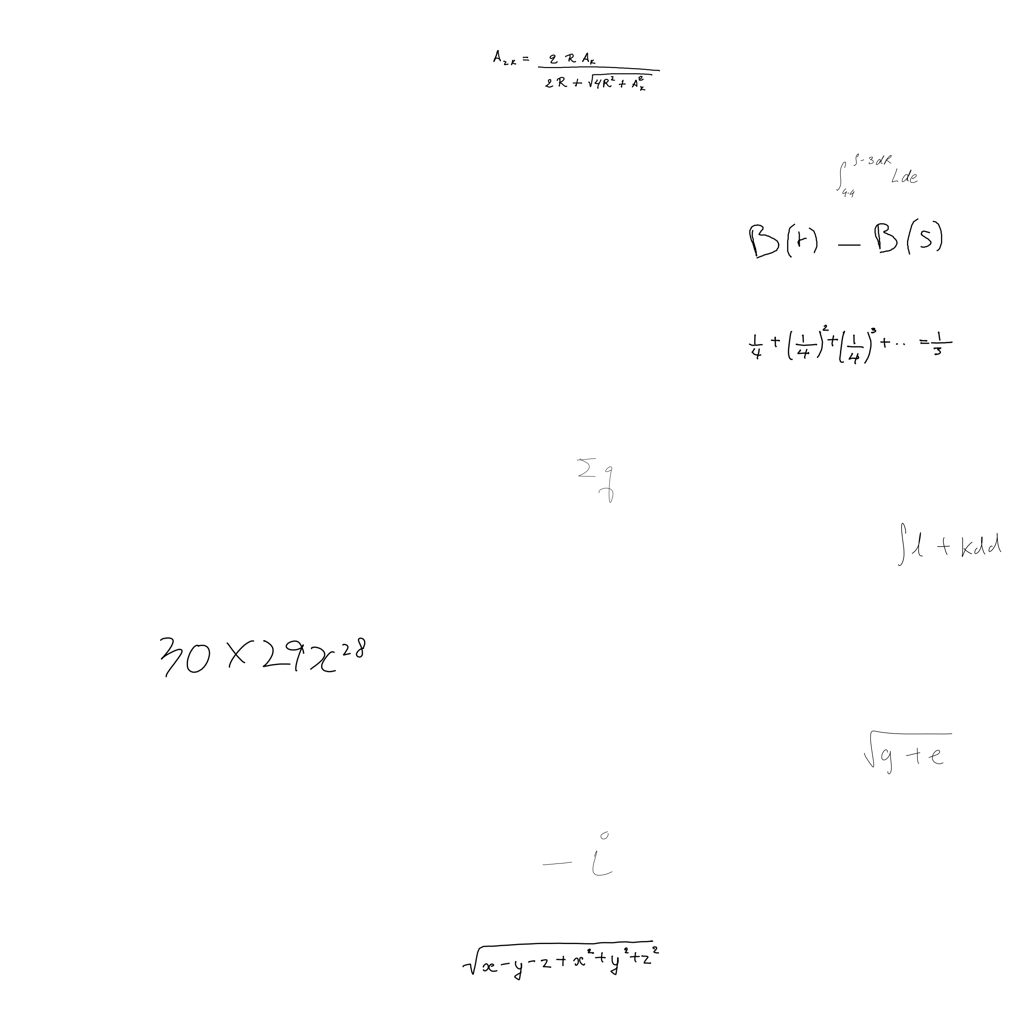 A_{2k} = \frac{2 R A_k}{2R + \sqrt{4R^2 + A_k^2}}
\int_{49}^{\int - 3 d R} L d e
B(t) - B(s)
\frac{1}{4} + (\frac{1}{4})^2 + (\frac{1}{4})^3 + .. = \frac{1}{3}
\Sigma q
\int l + k d d
30 × 29 x^{28}
\sqrt{g + e}
- i
\sqrt{x - y - z + x^2 + y^2 + z^2}